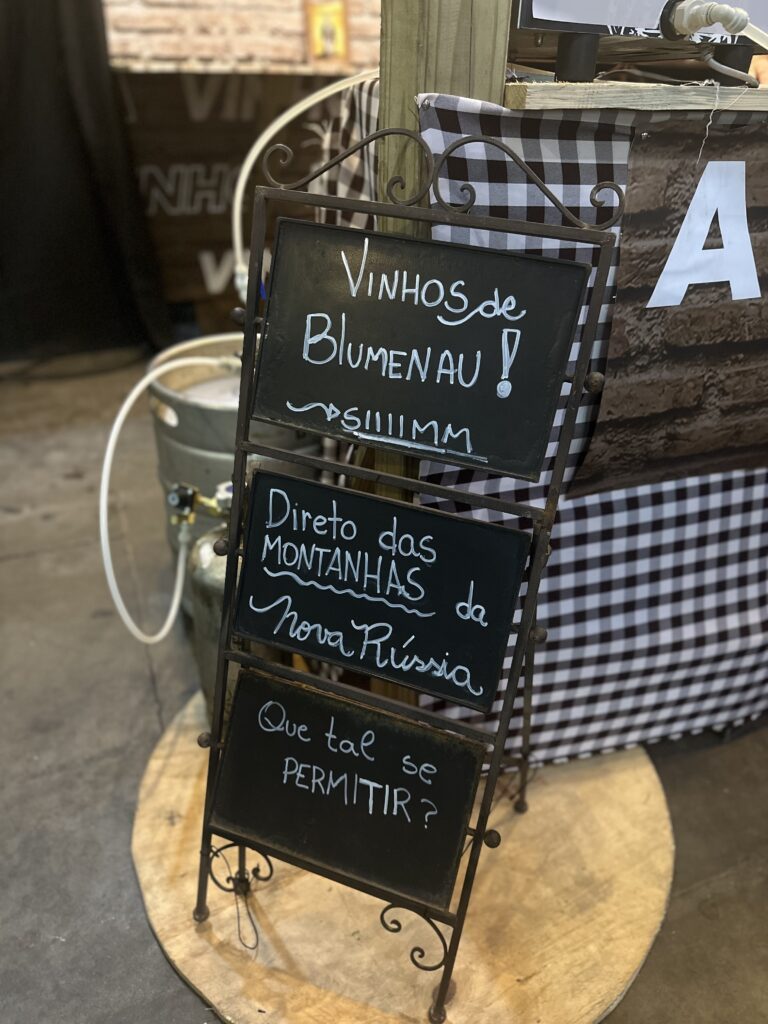 VINHOS de
BLUMENAU!
→SIIIIMM
Direto das
MONTANHAS da
Nova Rússia
Que tal se
PERMITIR?
A